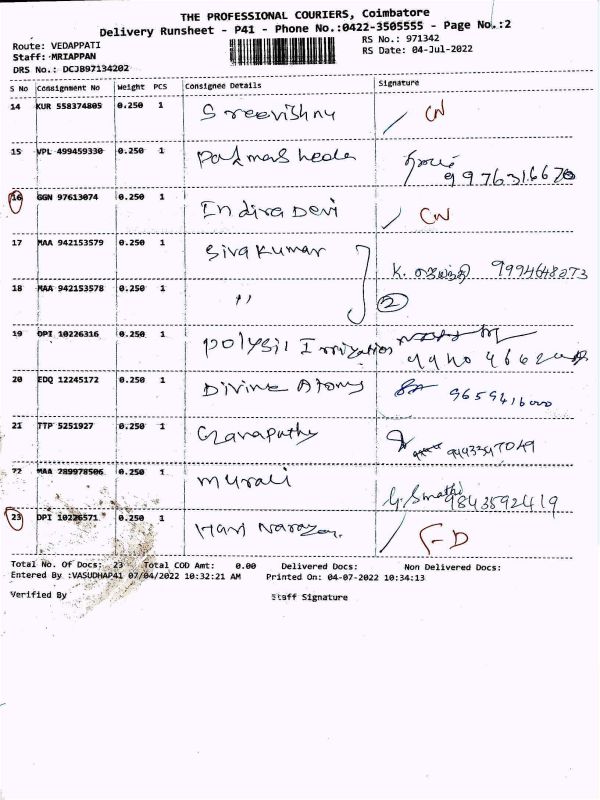 THE PROFESSIONAL COURIERS, Coimbatore
Delivery Runsheet - P41 - Phone No.:0422-3505555 - Page No.:2
Route: VEDAPPATI RS No.: 971342
Staff: MRIAPPAN RS Date: 04-Jul-2022
DRS No.: DCJB97134202
S No Consignment No Weight PCS Consignee Details Signature
14 KUR 558374805 0.250 1 Sreevishnu CN
15 VPL 499459330 0.250 1 9976316620
16 GGN 97613074 0.250 1 Indira Devi CN
17 MAA 942153579 0.250 1 Siva Kumar K. 9994648273
18 MAA 942153578 0.250 1 " 2
19 OPI 10226316 0.250 1 Polysil Irrigation
20 EDQ 12245172 0.250 1 Divine Atoms
21 TTP 5251927 0.250 1 Ganapathy
22 MAA 289978506 0.250 1 Murali G. Smathi 9843592419
23 DPI 10226571 0.250 1 Hari F-D
Total No. Of Docs: 23 Total COD Amt: 0.00 Delivered Docs: Non Delivered Docs:
Entered By :VASUDHAP41 07/04/2022 10:32:21 AM Printed On: 04-07-2022 10:34:13
Verified By Staff Signature